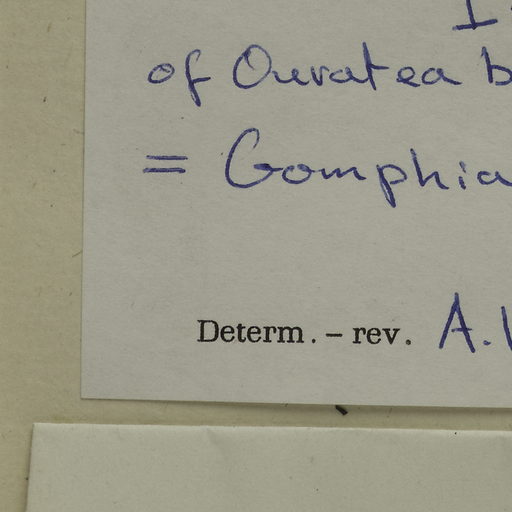 of Ouratea
= Gomphia
Determ. – rev. A.